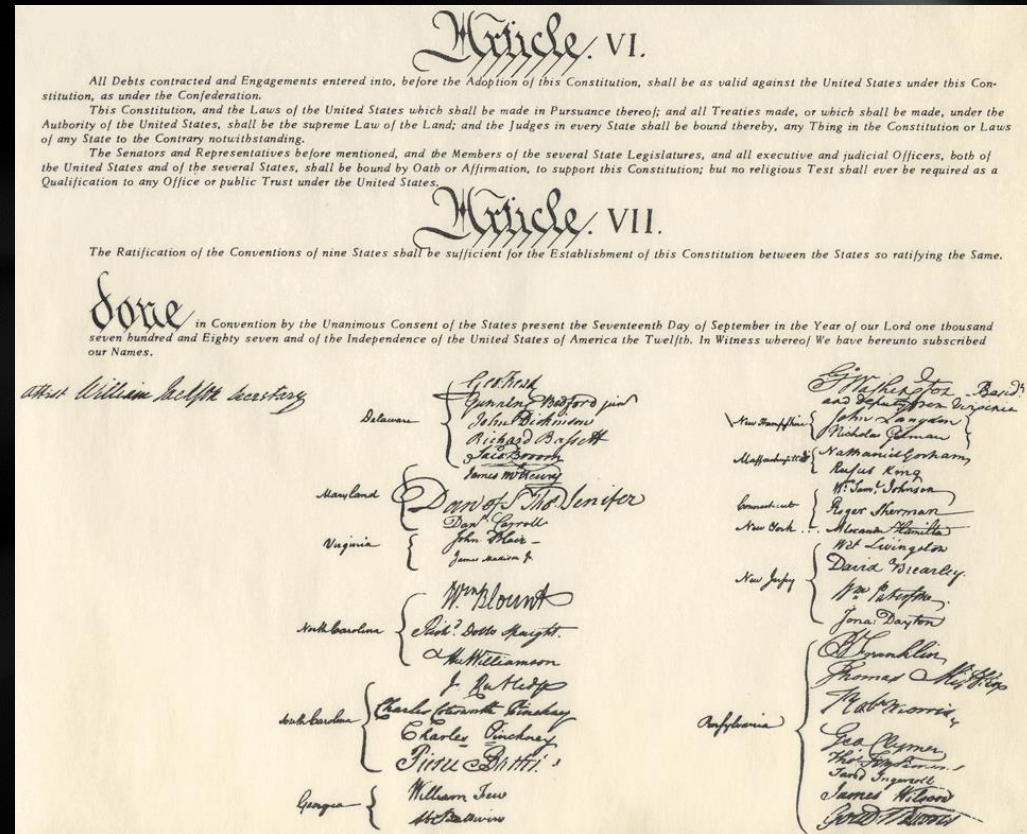 Article. VI.
All Debts contracted and Engagements entered into, before the Adoption of this Constitution, shall be as valid against the United States under this Con-
stitution, as under the Confederation.
This Constitution, and the Laws of the United States which shall be made in Pursuance thereof; and all Treaties made, or which shall be made, under the
Authority of the United States, shall be the supreme Law of the Land; and the Judges in every State shall be bound thereby, any Thing in the Constitution or Laws
of any State to the Contrary notwithstanding.
The Senators and Representatives before mentioned, and the Members of the several State Legislatures, and all executive and judicial Officers, both of
the United States and of the several States, shall be bound by Oath or Affirmation, to support this Constitution; but no religious Test shall ever be required as a
Qualification to any Office or public Trust under the United States.
Article. VII.
The Ratification of the Conventions of nine States shall be sufficient for the Establishment of this Constitution between the States so ratifying the Same.
done in Convention by the Unanimous Consent of the States present the Seventeenth Day of September in the Year of our Lord one thousand
seven hundred and Eighty seven and of the Independence of the United States of America the Twelfth. In Witness whereof We have hereunto subscribed
our Names.
attest William Jackson Secretary
Delaware
Geo: Read
Gunning Bedford jun
John Dickinson
Richard Bassett
Jaco: Broom
Maryland
James McHenry
Dan of St Thos. Jenifer
Danl Carroll
Virginia
John Blair
James Madison Jr.
North Carolina
Wm. Blount
Richd. Dobbs Spaight.
Hu Williamson
South Carolina
J. Rutledge
Charles Cotesworth Pinckney
Charles Pinckney
Pierce Butler.
Georgia
William Few
Abr Baldwin
Go. Washington
and deputy from Virginia
New Hampshire
John Langdon
Nicholas Gilman
Massachusetts
Nathaniel Gorham
Rufus King
Connecticut
Wm. Saml. Johnson
Roger Sherman
New York . . .
Alexander Hamilton
New Jersey
Wil: Livingston
David Brearley.
Wm. Paterson.
Jona: Dayton
Pensylvania
B Franklin
Thomas Mifflin
Robt Morris
Geo. Clymer
Thos. FitzSimons
Jared Ingersoll
James Wilson
Gouv Morris